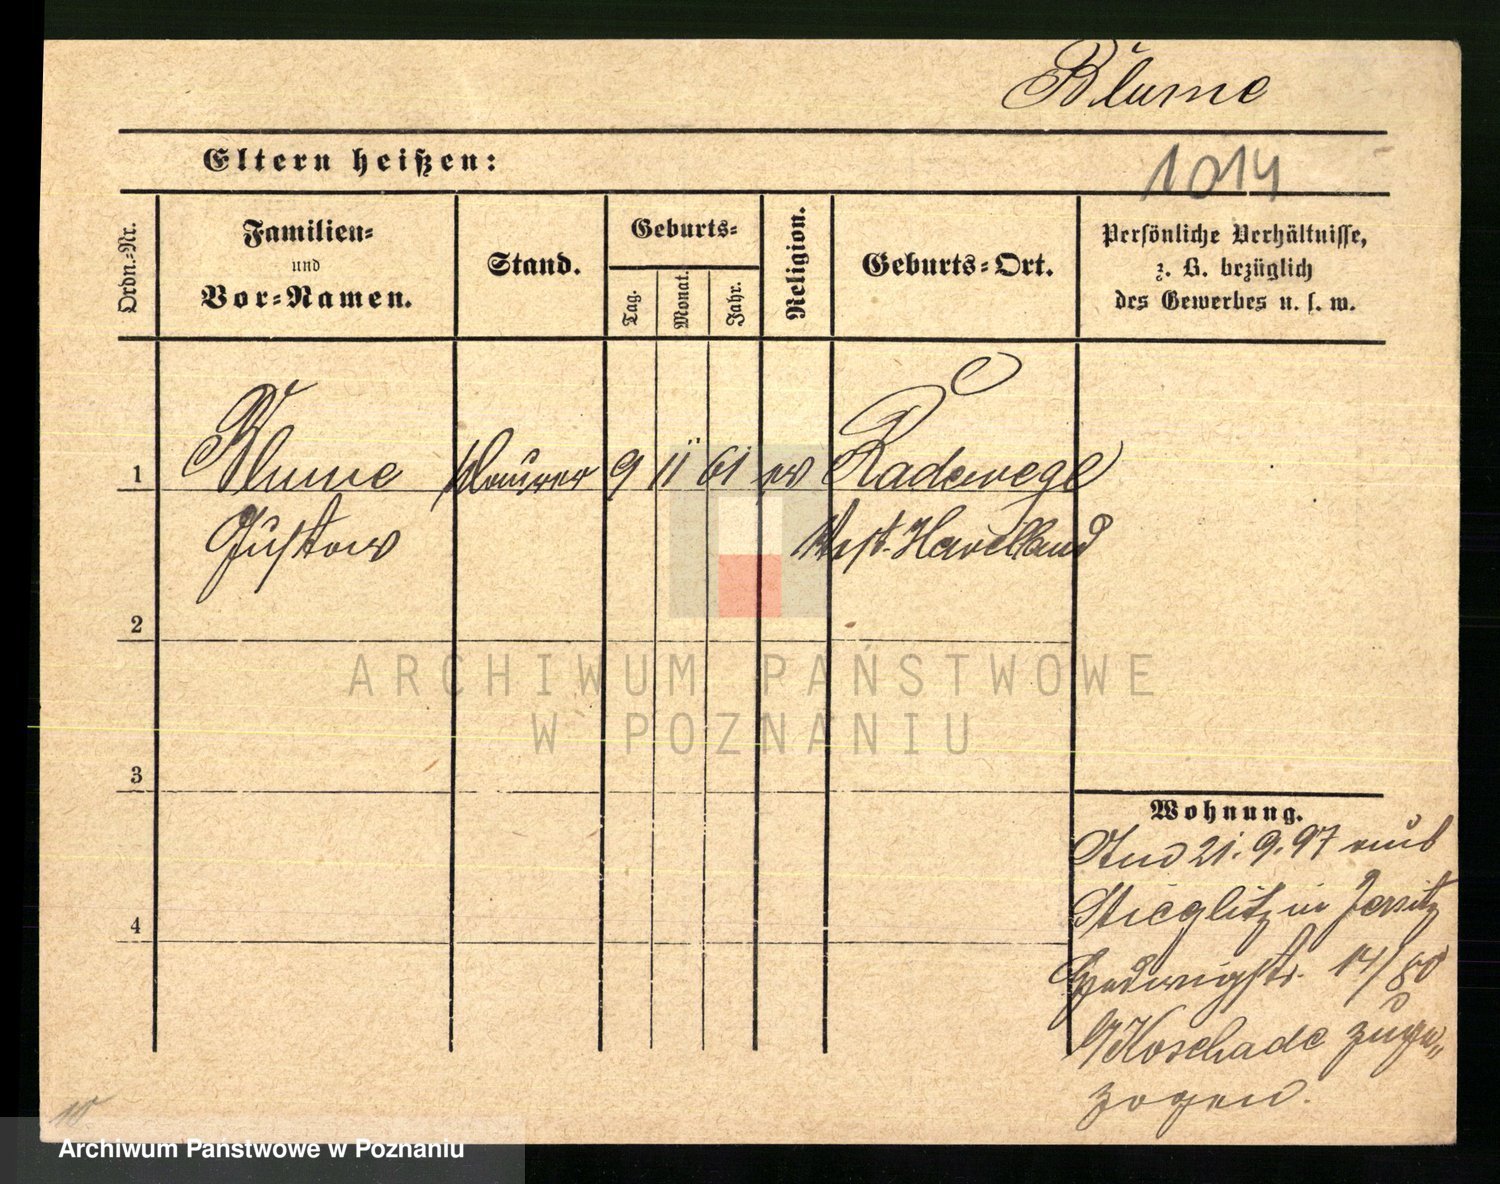 Blume
Eltern heißen:
1014
Ordn.-Nr.
Familien-
und
Vor-Namen.
Stand.
Geburts-
Tag.
Monat.
Jahr.
Religion.
Geburts-Ort.
Persönliche Verhältnisse,
z. B. bezüglich
des Gewerbes u. s. w.
1
Blume Maurer 9 11 61 ev Radewege
Gustav West-Havelland
2
3
4
ARCHIWUM PAŃSTWOWE
W POZNANIU
Wohnung.
Am 21.9.97 aus
Stieglitz in Jersitz
Hedwigstr. 14/
b/Koschade zuge-
zogen.
Archiwum Państwowe w Poznaniu